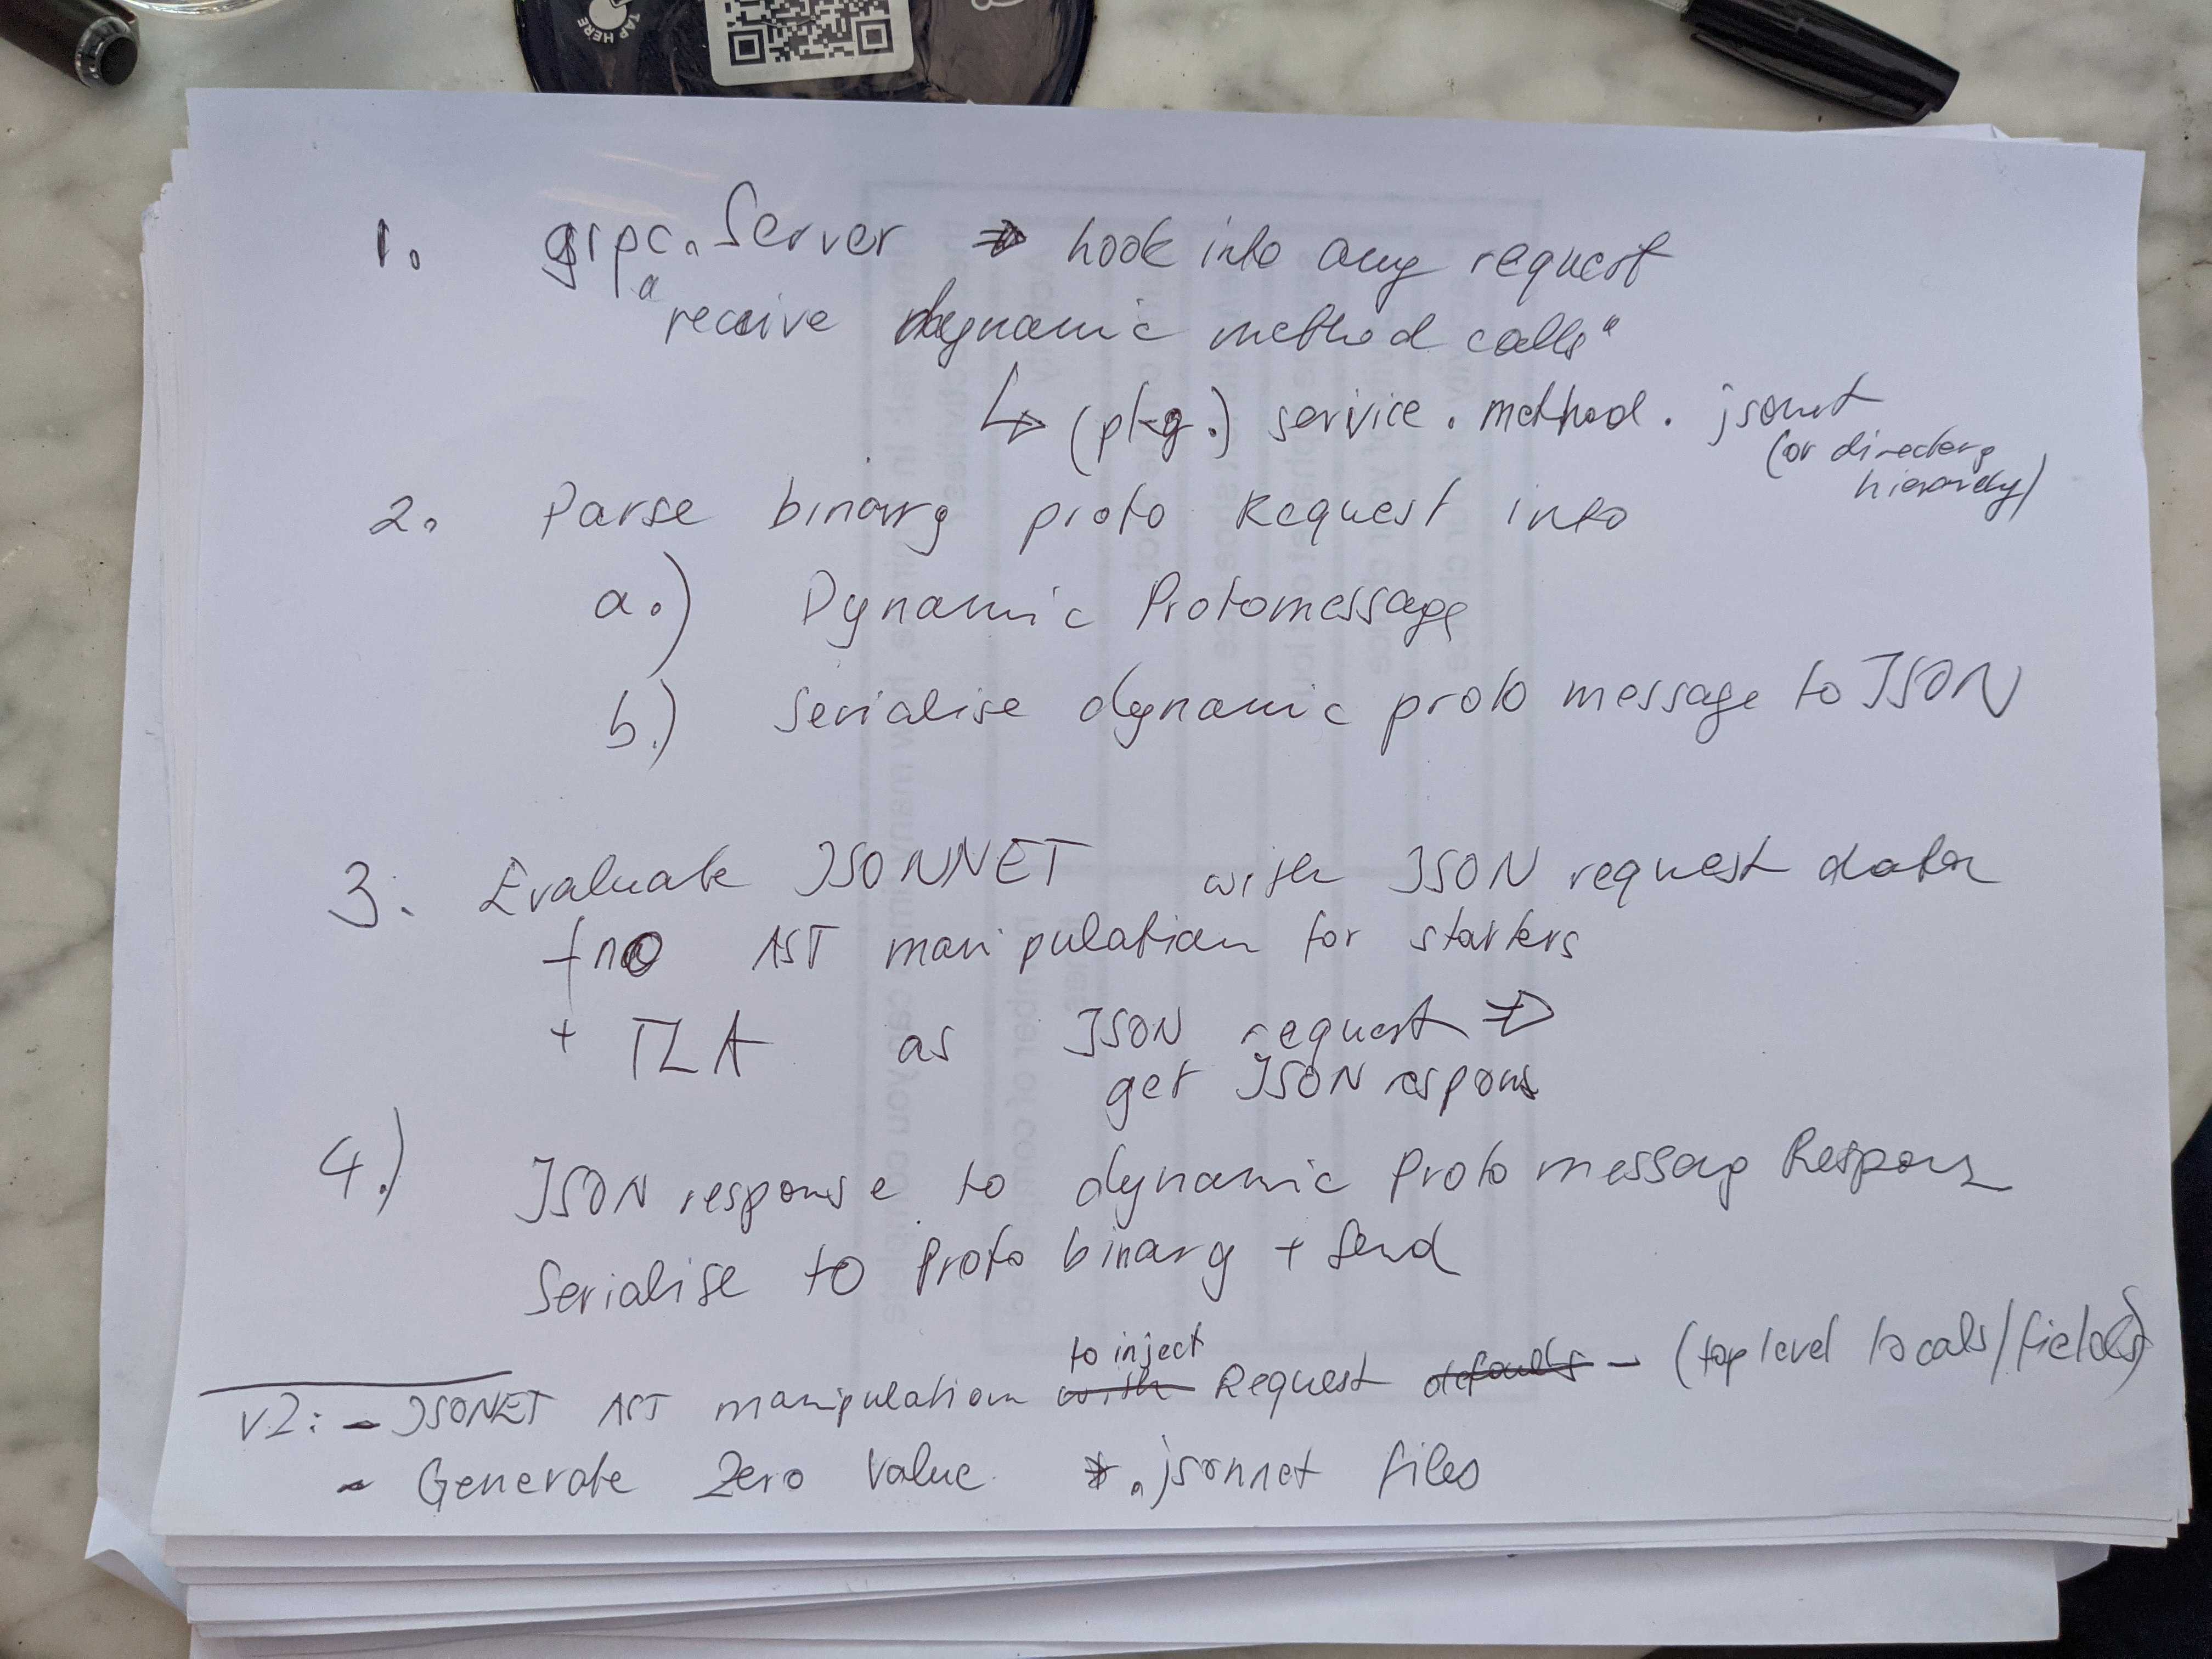 TAP HERE
1. grpc.Server ⇒ hook into any request
"receive dynamic method calls"
↳ (pkg.) service . method . jsonnet
(or directory
hierarchy)
2. Parse binary proto Request into
a.) Dynamic Protomessage
b.) Serialise dynamic proto message to JSON
3. Evaluate JSONNET with JSON request data
no AST manipulation for starters
+ TLA as JSON request ⇒
get JSON respons
4.) JSON response to dynamic Proto message Respons
Serialise to Proto binary + Send
to inject
v2: - JSONET AST manipulation with Request defaults - (top level locals/fields)
- Generate Zero Value *.jsonnet files